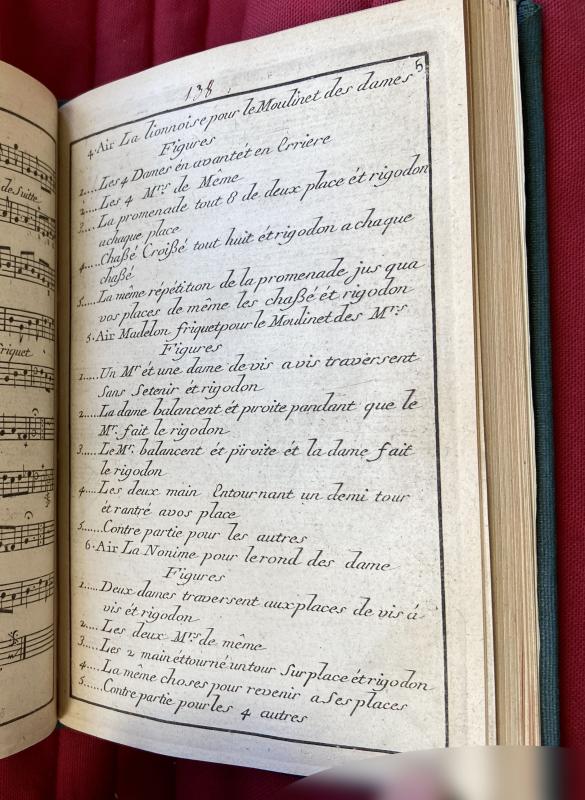 de Suitte
riquet
138.
5
4. Air La lionnoise pour le Moulinet des dames
Figures
1.... Les 4 Dames en avantét en Erriere
2.... Les 4 Mrs de Même
3.... La promenade tout 8 de deux place ét rigodon
achaque place
4.... Chaßé Croißé tout huit ét rigodon a chaque
chaßé
5.... La même répétition de la promenade jus qua
vos places de même les chaßé ét rigodon
5. Air Madelon friquet pour le Moulinet des Mrs
Figures
1.... Un Mr ét une dame de vis a vis traversent
Sans Setenir ét rigodon
2.... La dame balancent ét piroite pandant que le
Mr. fait le rigodon
3.... Le Mr. balancent ét piroite ét la dame fait
le rigodon
4.... Les deux main Entournant un demi tour
ét rantré avos place
5...... Contre partie pour les autres
6. Air La Nonime pour le rond des dame
Figures
1..... Deux dames traversent aux places de vis á-
vis ét rigodon
2.... Les deux Mrs de même
3..... Les 2 main éttournié un tour Sur place ét rigodon
4..... La même choses pour revenir a Ses places
5...... Contre partie pour les 4 autres